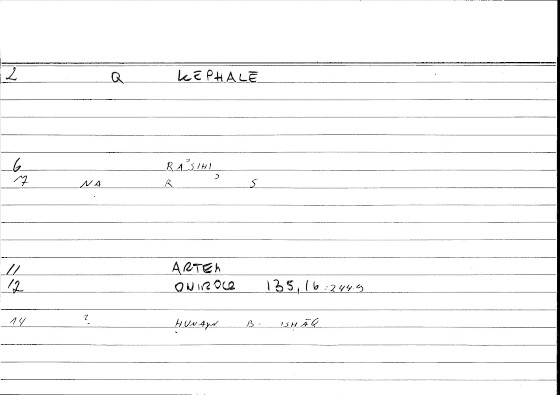 2 Q KĒPHALĒ
6 RAʾSIHI
7 NA R ʾ S
11 ARTEM
12 ONIROCR 135,16:244.9
14 ? ḤUNAYN B. ISḤĀQ